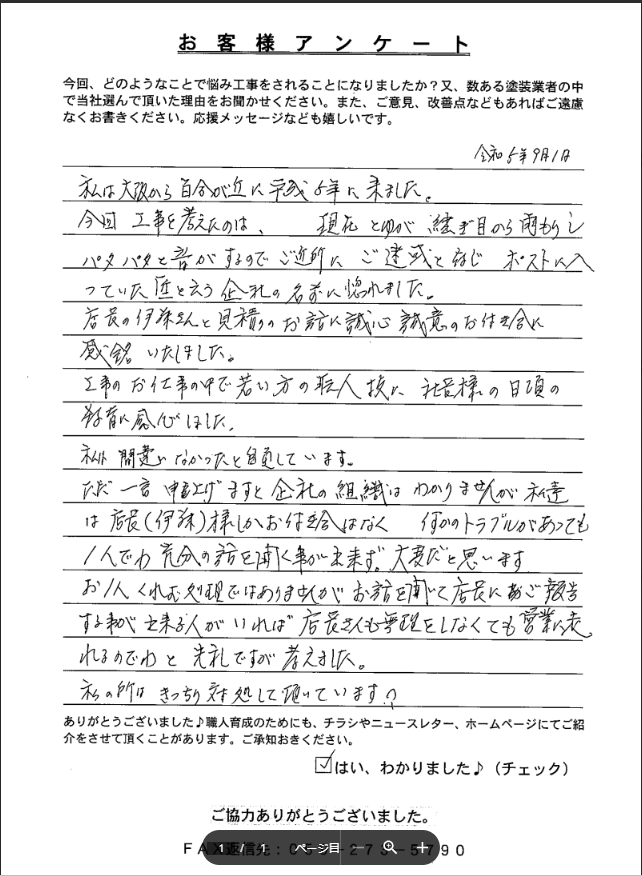 お客様アンケート
今回、どのようなことで悩み工事をされることになりましたか？又、数ある塗装業者の中
で当社選んで頂いた理由をお聞かせください。また、ご意見、改善点などもあればご遠慮
なくお書きください。応援メッセージなども嬉しいです。
令和5年9月1日
私は大阪から自分が近に平成5年に来ました。
今回 工事を考えたのは、 現在 とゆが 継ぎ目から雨もりし
パタパタと音がするので ご近所に ご迷惑と存じ ポストに入
っていた 匠と云う 企社の名前に惚れました。
店長の伊藤さんと見積りのお話に誠心誠意のお付き合に
感銘 いたしました。
工事のお仕事の中で若い方の職人 技に 社員様の日頃の
教育に感心しました。
私は間違いなかったと自負しています。
ただ 一言 申し上げますと企社の組織はわかりませんが 私達
は店長(伊藤)様しかお付き合はなく 何かのトラブルがあっても
1人でわ 充分の話を聞く事が出来ず、大変だと思います
お1人 処理ではありませんが お話を聞いて店長に ご報告
する事が出来る人がいれば 店長さんも無理をしなくても営業に表
れるのでわと 失礼ですが考えました。
私の所は きっちり対処して頂いています
ありがとうございました♪職人育成のためにも、チラシやニュースレター、ホームページにてご紹
介をさせて頂くことがあります。ご承知おきください。
はい、わかりました♪（チェック）
ご協力ありがとうございました。
1 / 1 ページ目